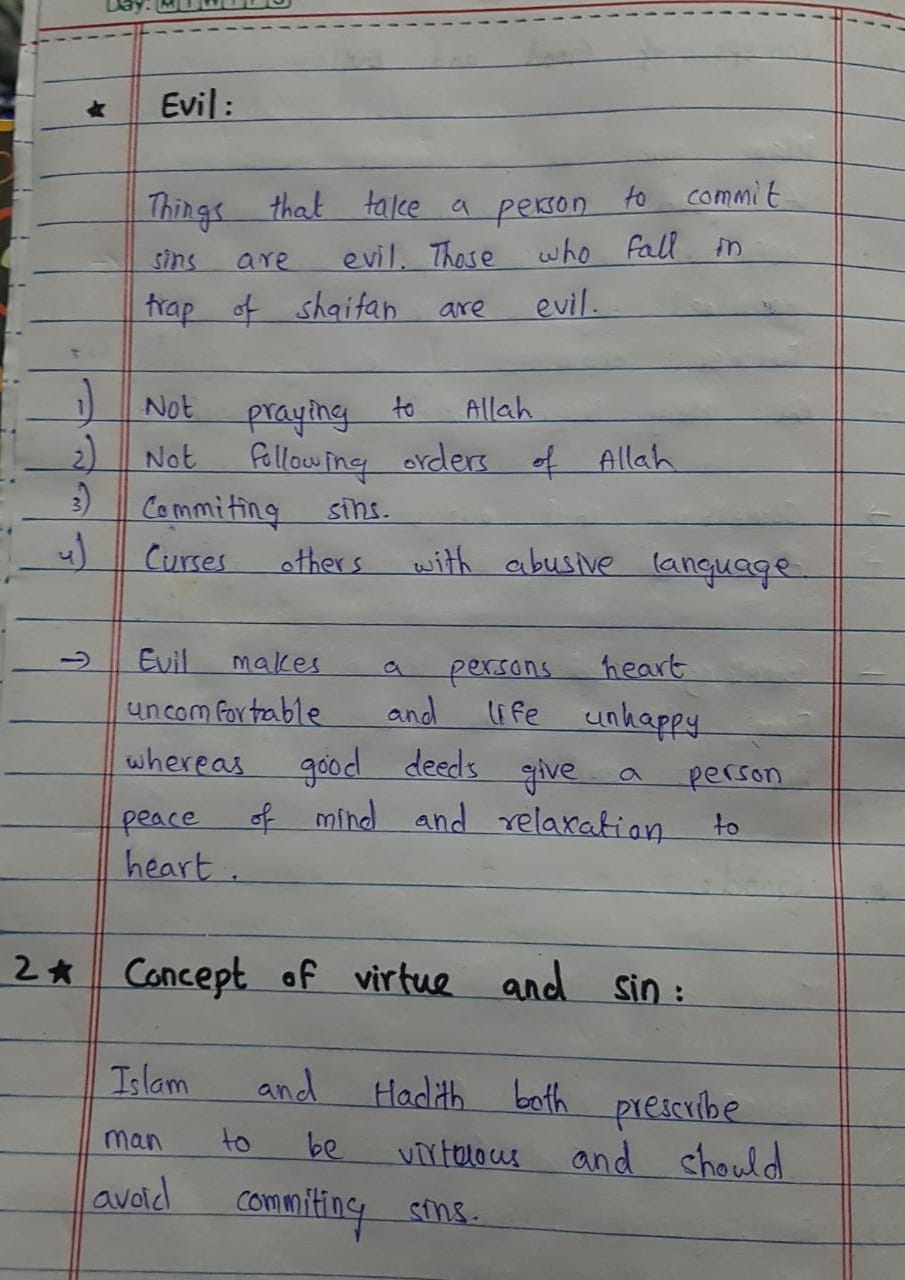 Day: M T W T F S
★ Evil:
Things that take a person to commit
sins are evil. Those who fall in
trap of shaitan are evil.
1) Not praying to Allah
2) Not following orders of Allah
3) Commiting sins.
4) Curses others with abusive language.
→ Evil makes a persons heart
uncomfortable and life unhappy
whereas good deeds give a person
peace of mind and relaxation to
heart.
2★ Concept of virtue and sin:
Islam and Hadith both prescribe
man to be virtuous and should
avoid commiting sins.